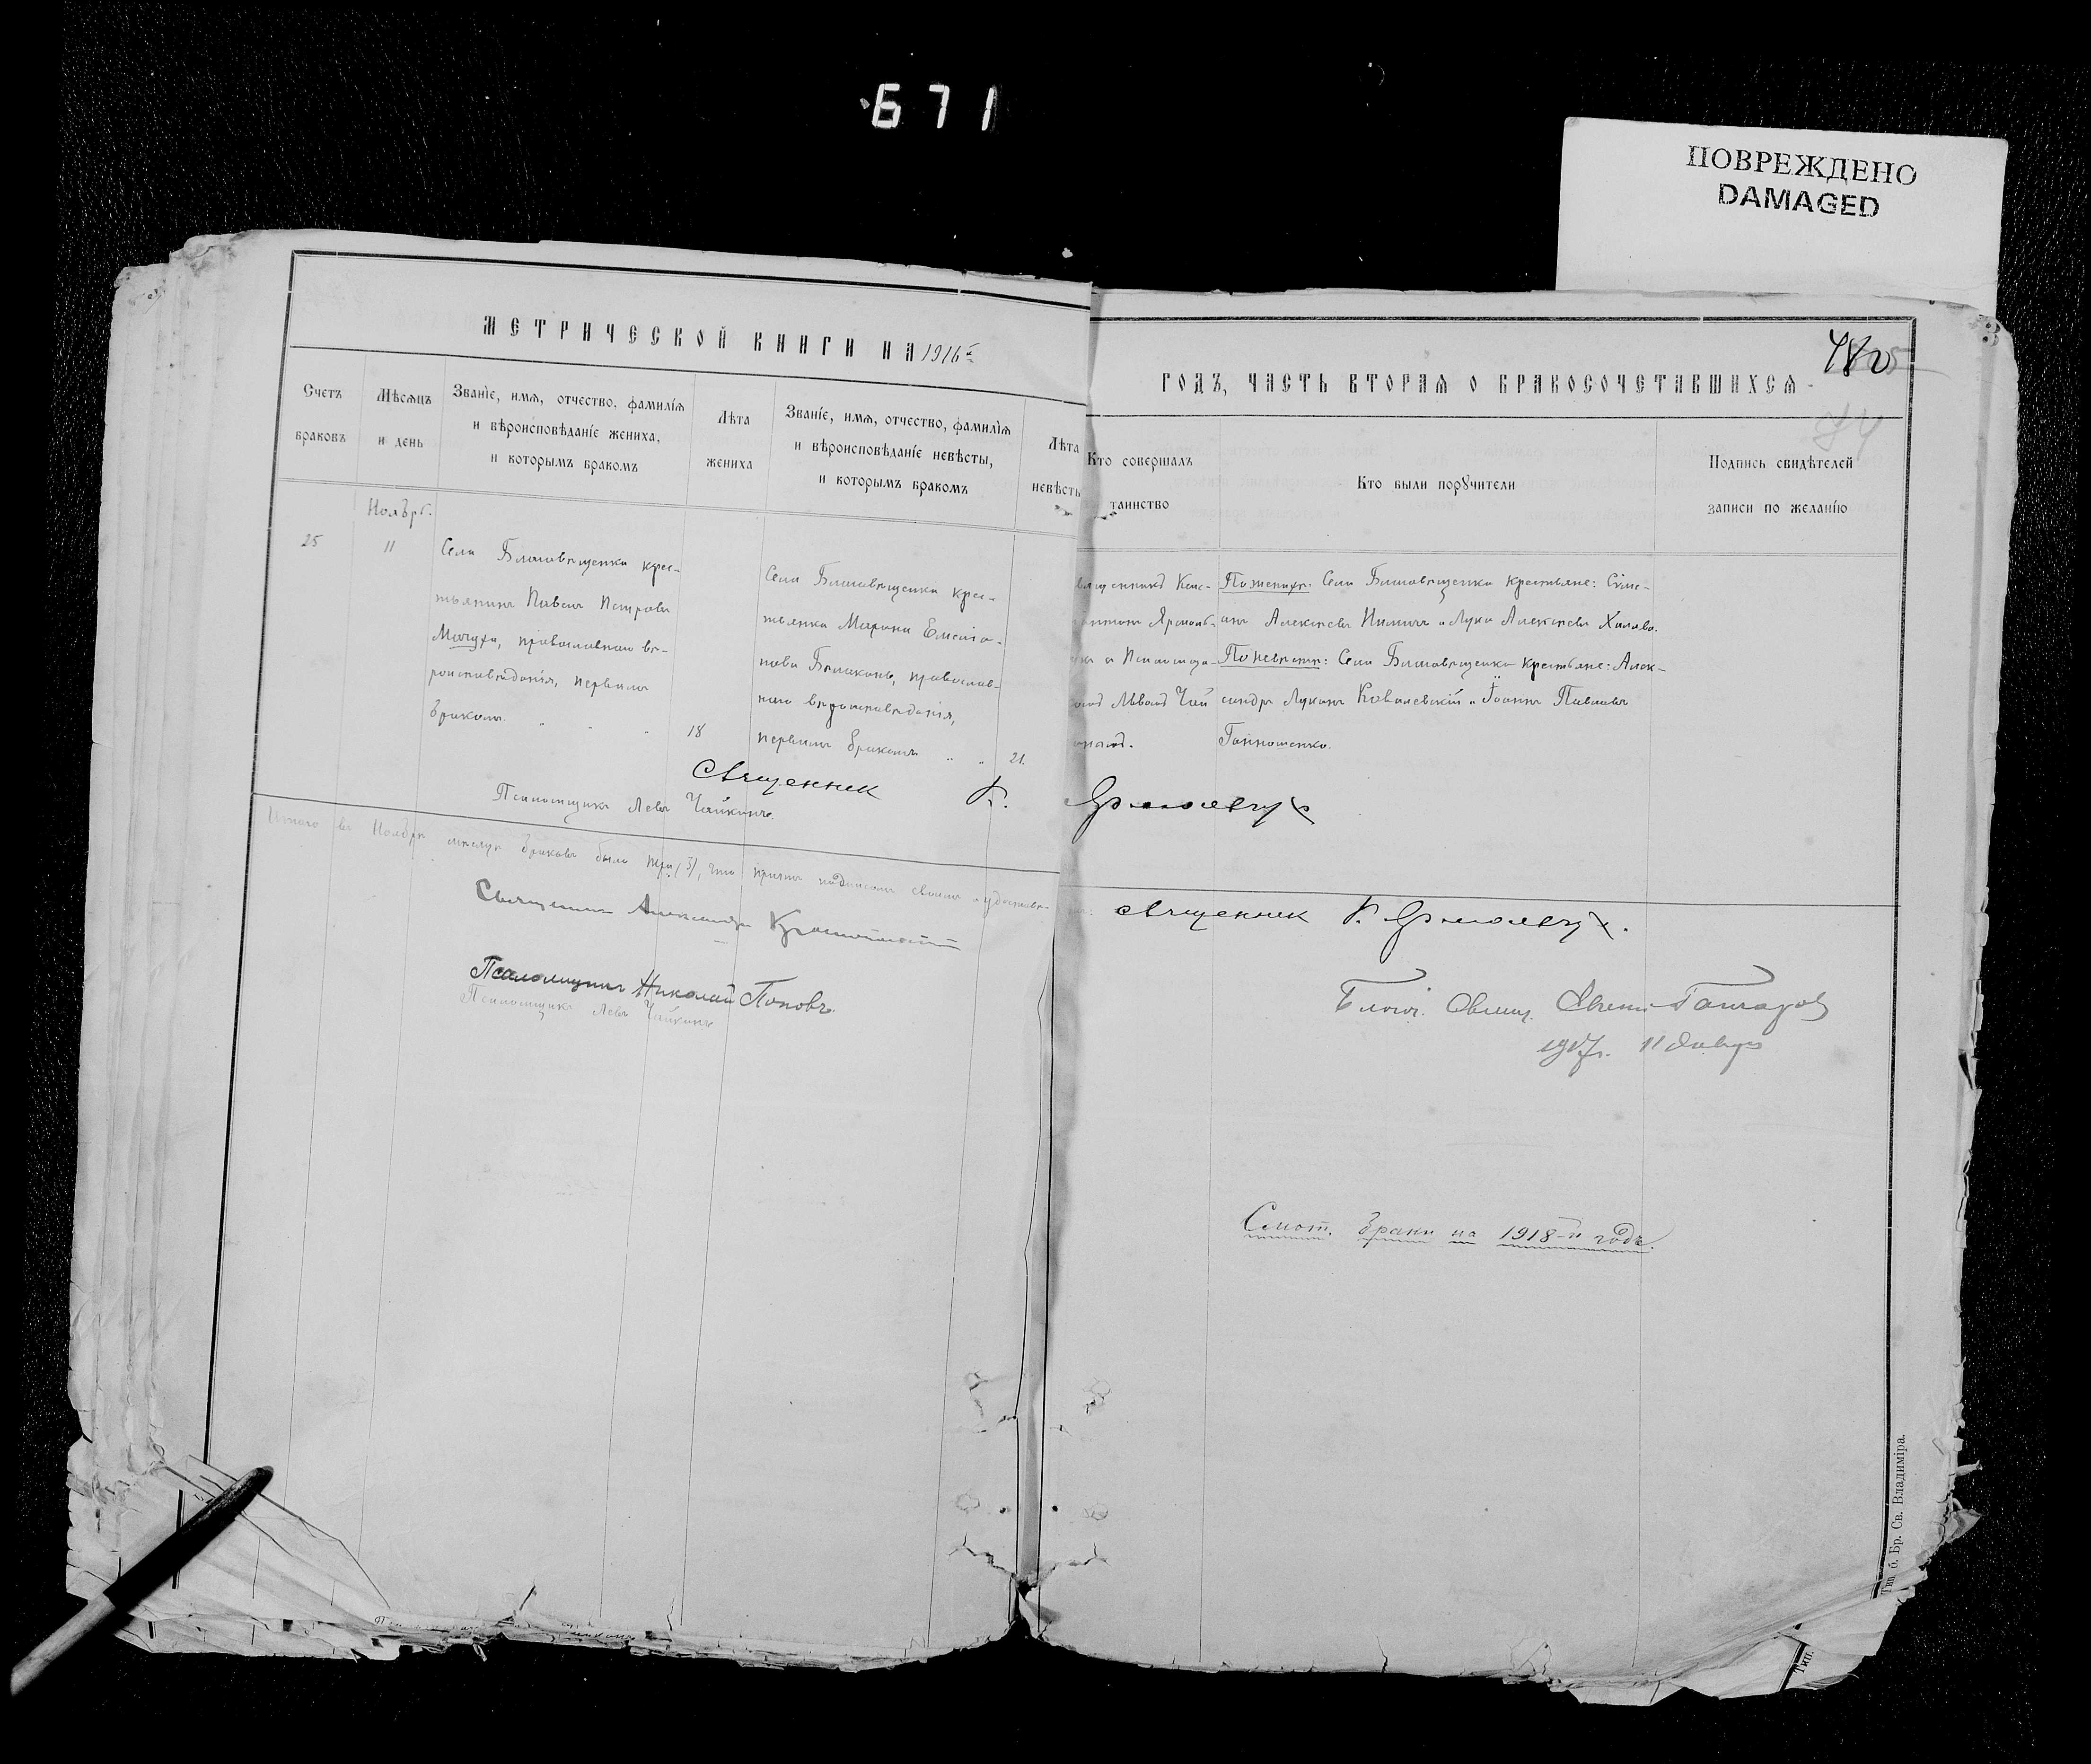 671
ПОВРЕЖДЕНО
DAMAGED
МЕТРИЧЕСКОЙ КНИГИ НА 1916
ГОДЪ, ЧАСТЬ ВТОРАЯ О БРАКОСОЧЕТАВШИХСЯ
Счетъ
браковъ
Мѣсяцъ
и день
Званіе, имя, отчество, фамилія
и вѣроисповѣданіе жениха,
и которымъ бракомъ
Лѣта
жениха
Званіе, имя, отчество, фамилія
и вѣроисповѣданіе невѣсты,
и которымъ бракомъ
Лѣта
невѣсты
Кто совершалъ
таинство
Кто были порꙋчители
Подпись свидѣтелей
записи по желанію
Ноября.
25
11
Села Благовѣщенки крес-
тьянинъ Павелъ Петровъ
Мачуха, православнаго вѣ-
роисповѣданія, первымъ
бракомъ.
18
Села Благовѣщенки крес-
тьянка Марина Емелiа-
нова, православ-
наго вѣроисповѣданія,
первымъ бракомъ
21.
По женихѣ: Села Благовѣщенки крестьяне: Сѵме-
онъ Алексѣевъ и Лука Алексѣевъ
По невѣстѣ: Села Благовѣщенки крестьяне: Алек-
сандръ Лукинъ Ковалевскій и Іоаннъ Павловъ
Священник К. Ярмолевич
Псаломщикъ Левъ Чайкинъ.
Итого въ Ноябрѣ мѣсяцѣ браковъ было три (3), что причтъ подписомъ своимъ и удостовѣ-
Священникъ Александръ
священник К. Ярмолевич.
Псаломщикъ Николай Поповъ.
Псаломщикъ Левъ Чайкинъ
Благоч. Свящ.
1917г. 11 Января
Смот. браки на 1918-й годъ.
Тип. б. Бр. Св. Владиміра.
Тип.